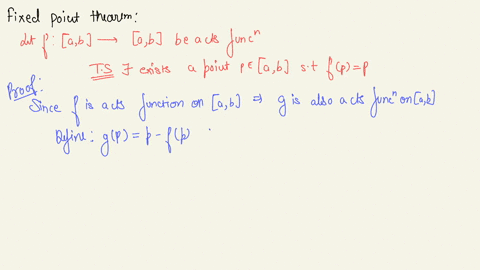 Fixed point theorem:
Let f: [a,b] ⟶ [a,b] be a cts funcⁿ
T.S ∃ exists a point p∈[a,b] s.t f(p)=p
Proof:
Since f is a cts function on [a,b] ⇒ g is also a cts funcⁿ on [a,b]
Define: g(p) = p − f(p)